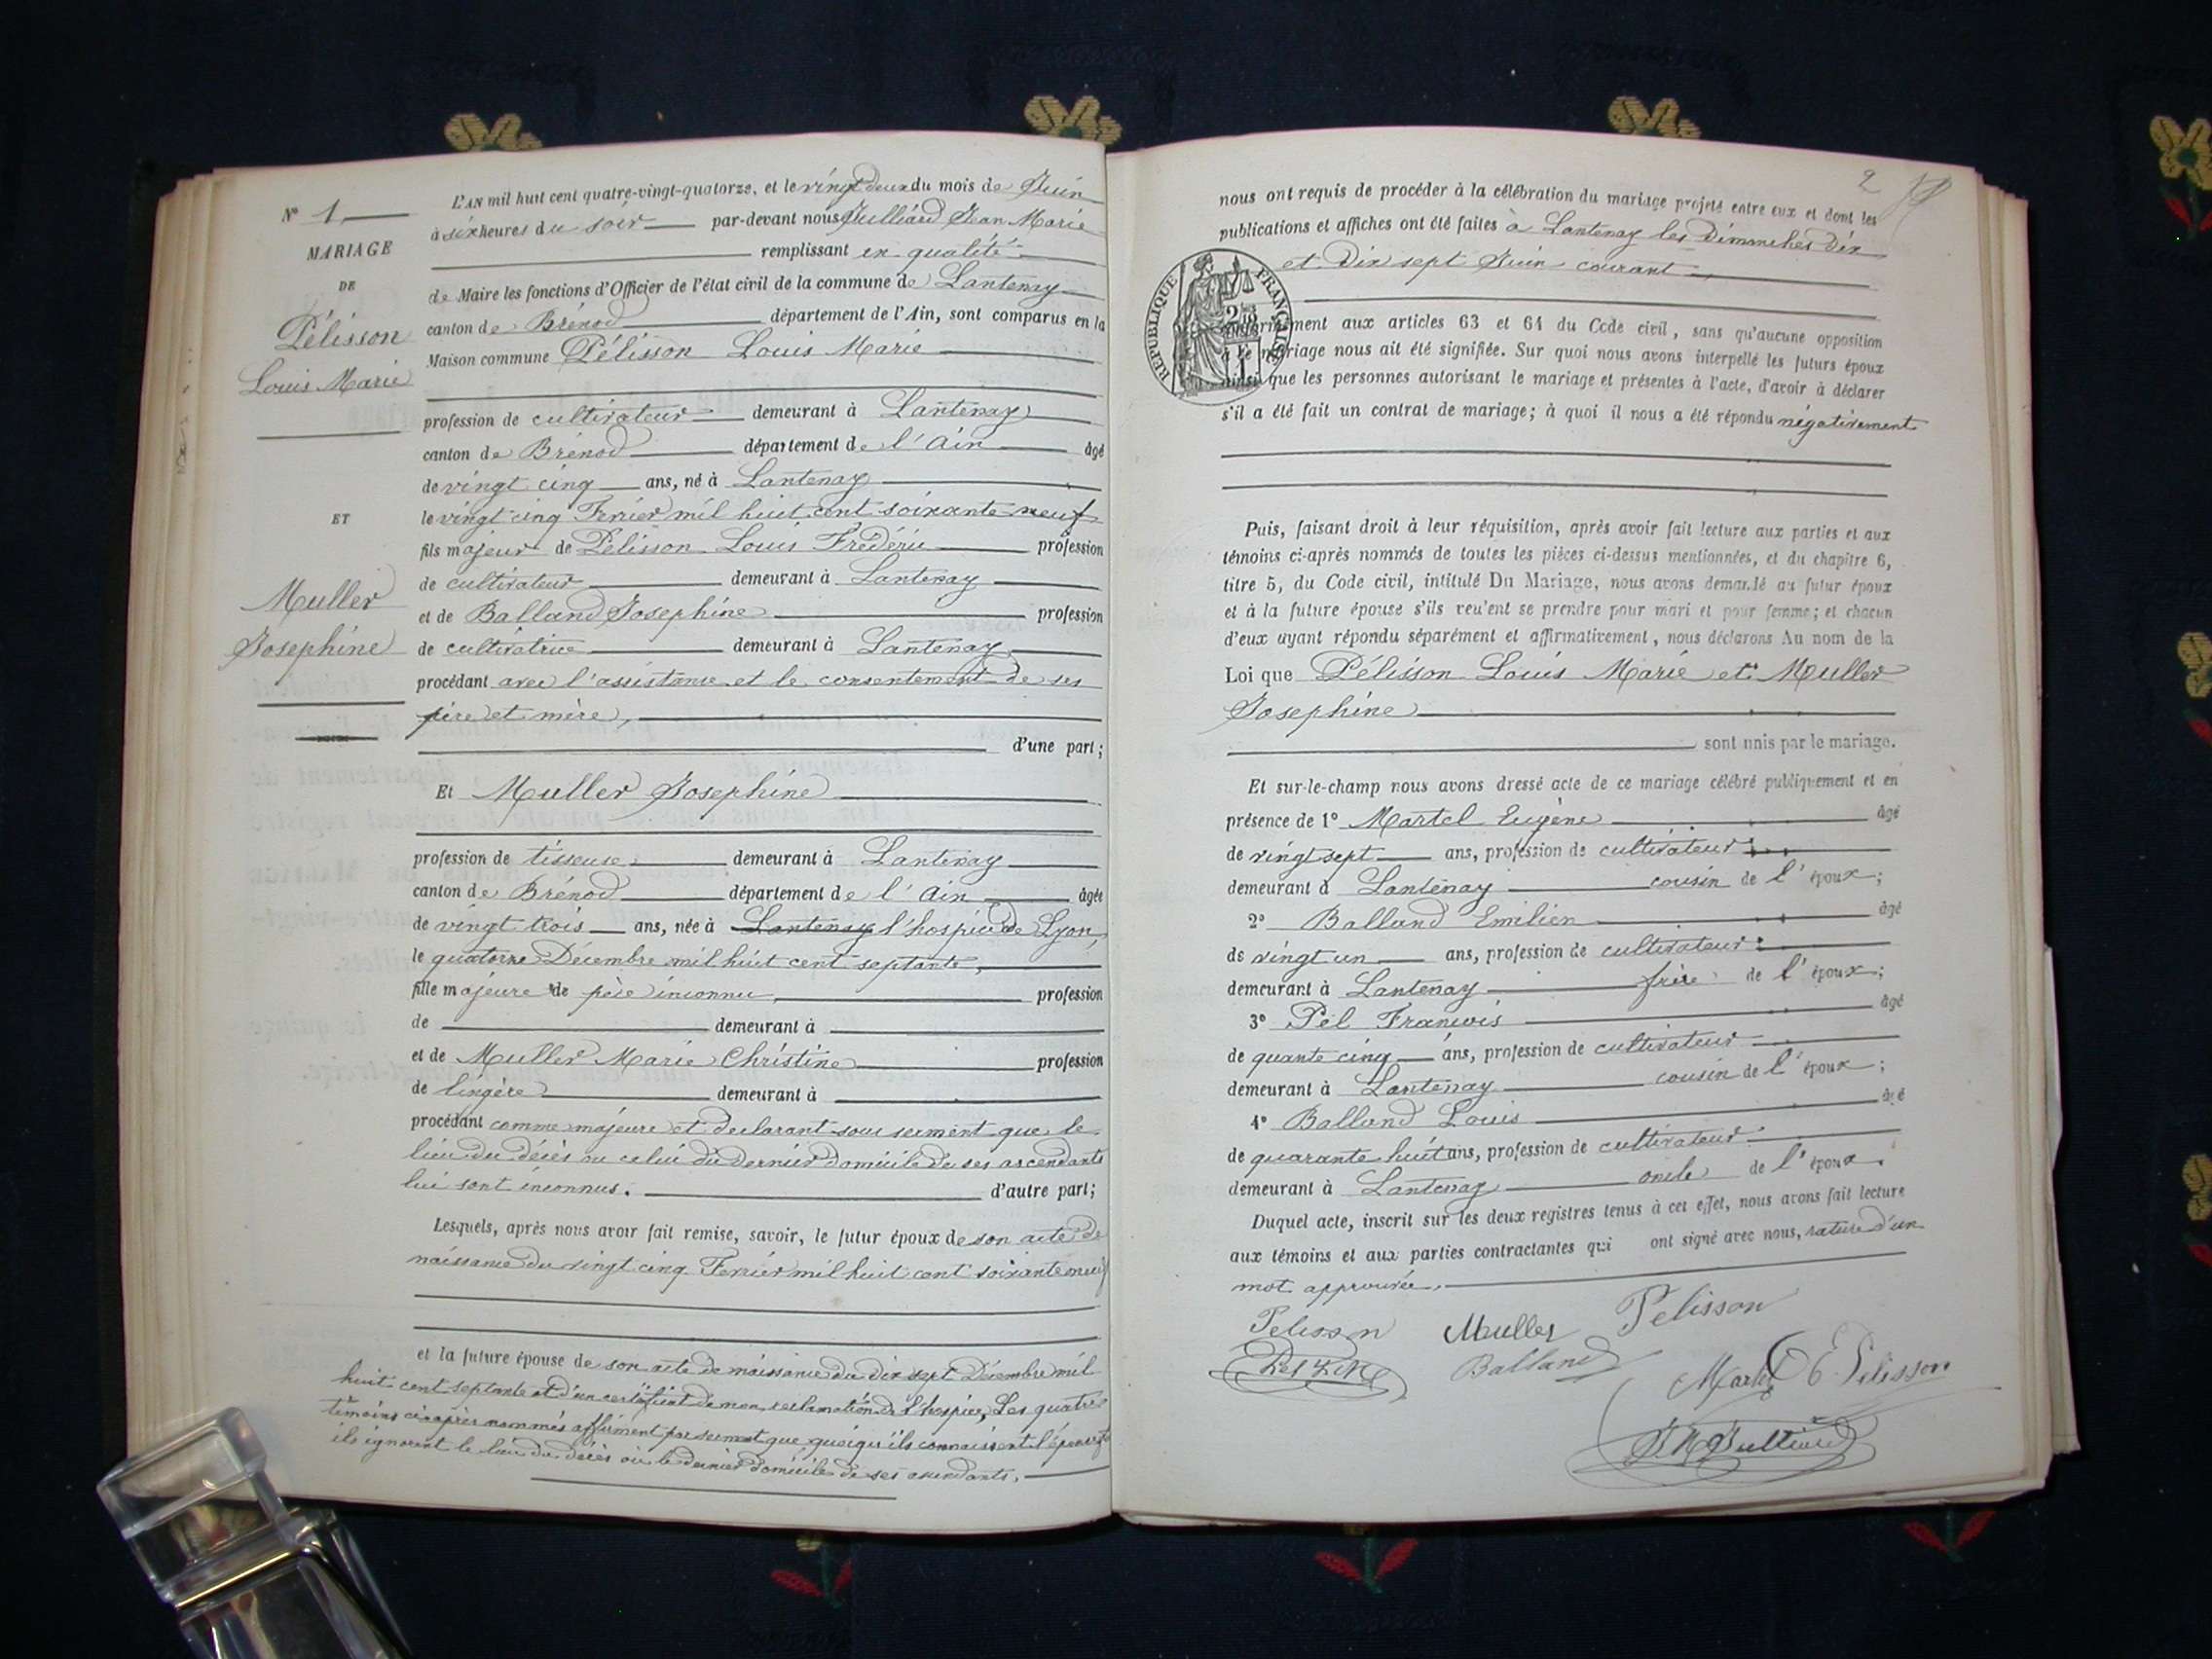 N° 1
MARIAGE
DE
Pélisson
Louis Marie
ET
Muller
Josephine
L'AN mil huit cent quatre-vingt-quatorze, et le vingt deux du mois de Juin
à six heures du soir par-devant nous Julliard Jean Marie
remplissant en qualité
de Maire les fonctions d'Officier de l'état civil de la commune de Lantenay
canton de Brénod département de l'Ain, sont comparus en la
Maison commune Pélisson Louis Marie
profession de cultivateur demeurant à Lantenay
canton de Brénod département de l'Ain âgé
de vingt cinq ans, né à Lantenay
le vingt cinq Fevrier mil huit cent soixante neuf
fils majeur de Pélisson Louis Frédéric profession
de cultivateur demeurant à Lantenay
et de Balland Josephine profession
de cultivatrice demeurant à Lantenay
procédant avec l'assistance et le consentement de ses
père et mère,
d'une part;
Et Muller Josephine
profession de tisseuse demeurant à Lantenay
canton de Brénod département de l'Ain âgée
de vingt trois ans, née à Lantenay l'hospice de Lyon,
le quatorze Décembre mil huit cent septante,
fille majeure de père inconnu, profession
de demeurant à
et de Muller Marie Christine profession
de lingère demeurant à
procédant comme majeure et declarant sous serment que le
lieu du décès ou celui du dernier domicile de ses ascendants
lui sont inconnus. d'autre part;
Lesquels, après nous avoir fait remise, savoir, le futur époux de son acte de
naissance du vingt cinq Fevrier mil huit cent soixante neuf
et la future épouse de son acte de naissance du dix sept Décembre mil
huit cent septante et d'un certificat de non reclamation de l'hospice, Les quatre
témoins ci-après nommés affirment par serment que quoiqu'ils connaissent l'épouse
ils ignorent le lieu du décès ou le dernier domicile de ses ascendants.
2
nous ont requis de procéder à la célébration du mariage projeté entre eux et dont les
publications et affiches ont été faites à Lantenay les Dimanches dix
et Dix sept Juin courant
REPUBLIQUE FRANÇAISE
conformément aux articles 63 et 64 du Code civil, sans qu'aucune opposition
à ce mariage nous ait été signifiée. Sur quoi nous avons interpellé les futurs époux
ainsi que les personnes autorisant le mariage et présentes à l'acte, d'avoir à déclarer
s'il a été fait un contrat de mariage; à quoi il nous a été répondu négativement
Puis, faisant droit à leur réquisition, après avoir fait lecture aux parties et aux
témoins ci-après nommés de toutes les pièces ci-dessus mentionnées, et du chapitre 6,
titre 5, du Code civil, intitulé Du Mariage, nous avons demandé au futur époux
et à la future épouse s'ils veulent se prendre pour mari et pour femme; et chacun
d'eux ayant répondu séparément et affirmativement, nous déclarons Au nom de la
Loi que Pélisson Louis Marie et Muller
Josephine
sont unis par le mariage.
Et sur-le-champ nous avons dressé acte de ce mariage célébré publiquement et en
présence de 1° Martel Eugène âgé
de vingt sept ans, profession de cultivateur
demeurant à Lantenay cousin de l'époux;
2° Balland Emilien âgé
de vingt un ans, profession de cultivateur
demeurant à Lantenay frère de l'époux;
3° Pel François âgé
de quante cinq ans, profession de cultivateur
demeurant à Lantenay cousin de l'époux;
4° Balland Louis âgé
de quarante huit ans, profession de cultivateur
demeurant à Lantenay oncle de l'époux.
Duquel acte, inscrit sur les deux registres tenus à cet effet, nous avons fait lecture
aux témoins et aux parties contractantes qui ont signé avec nous, rature d'un
mot approuvée.
Pelisson Muller Pelisson
Balland Martel E. Pelisson
J M Julliard